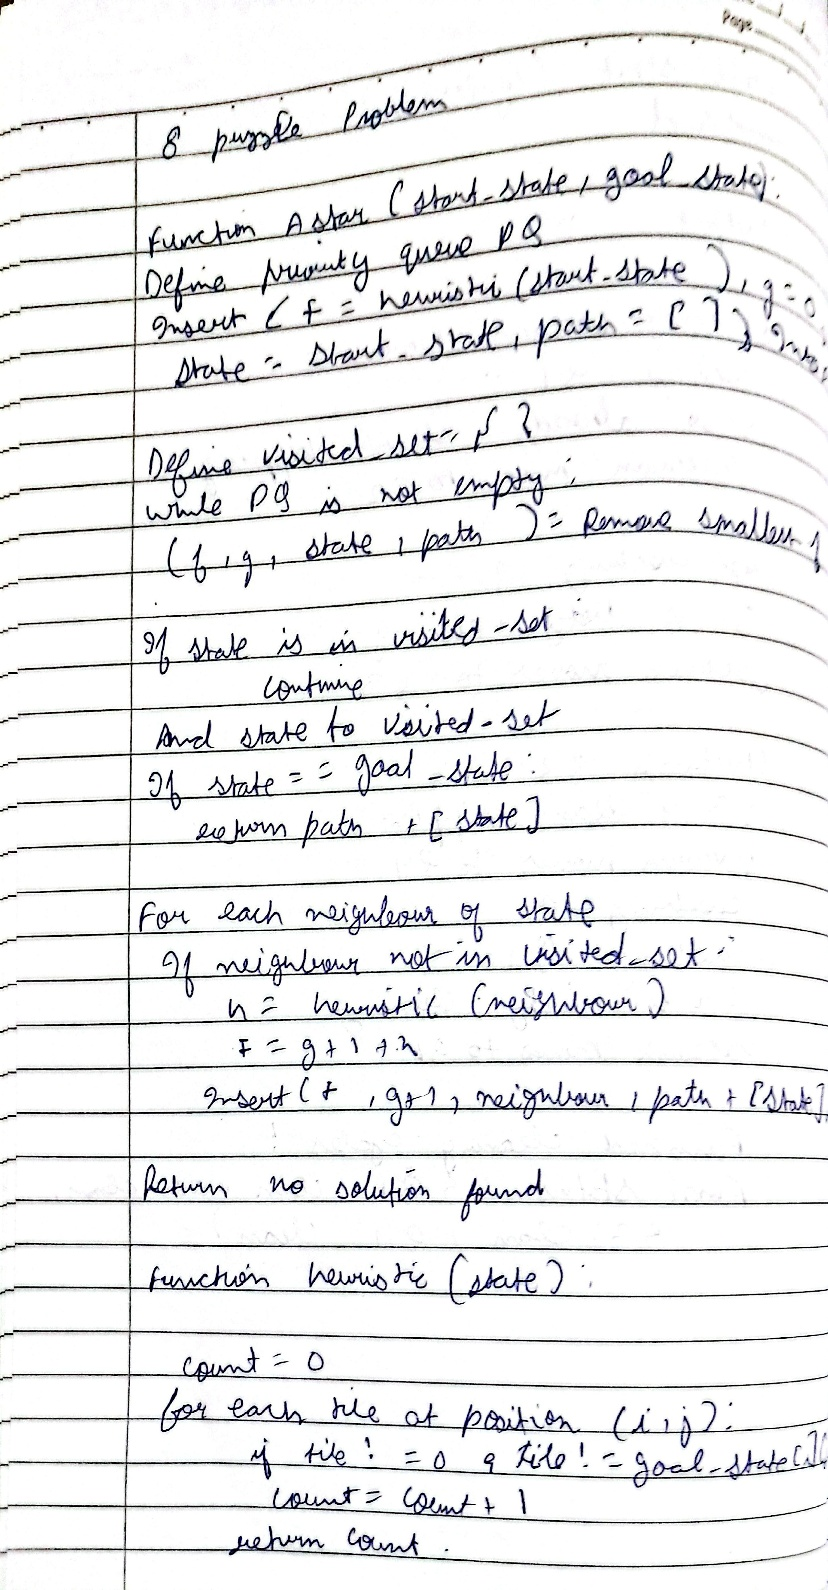 Page
8 puzzle Problem
Function A star (start-state, goal-state):
Define priority queue PQ
Insert (f = heuristic (start-state), g=0,
state = start-state, path = [ ]) into
Define visited_set = { }
while PQ is not empty:
(f, g, state, path) = Remove smallest f
If state is in visited-set:
continue
And state to visited-set
If state == goal-state:
return path + [state]
For each neighbour of state
If neighbour not in visited_set:
h = heuristic (neighbour)
F = g+1+h
Insert (f, g+1, neighbour, path + [state]
Return no solution found
function heuristic (state):
count = 0
for each tile at position (i,j):
if tile != 0 & tile != goal-state[i][
count = count + 1
return count.